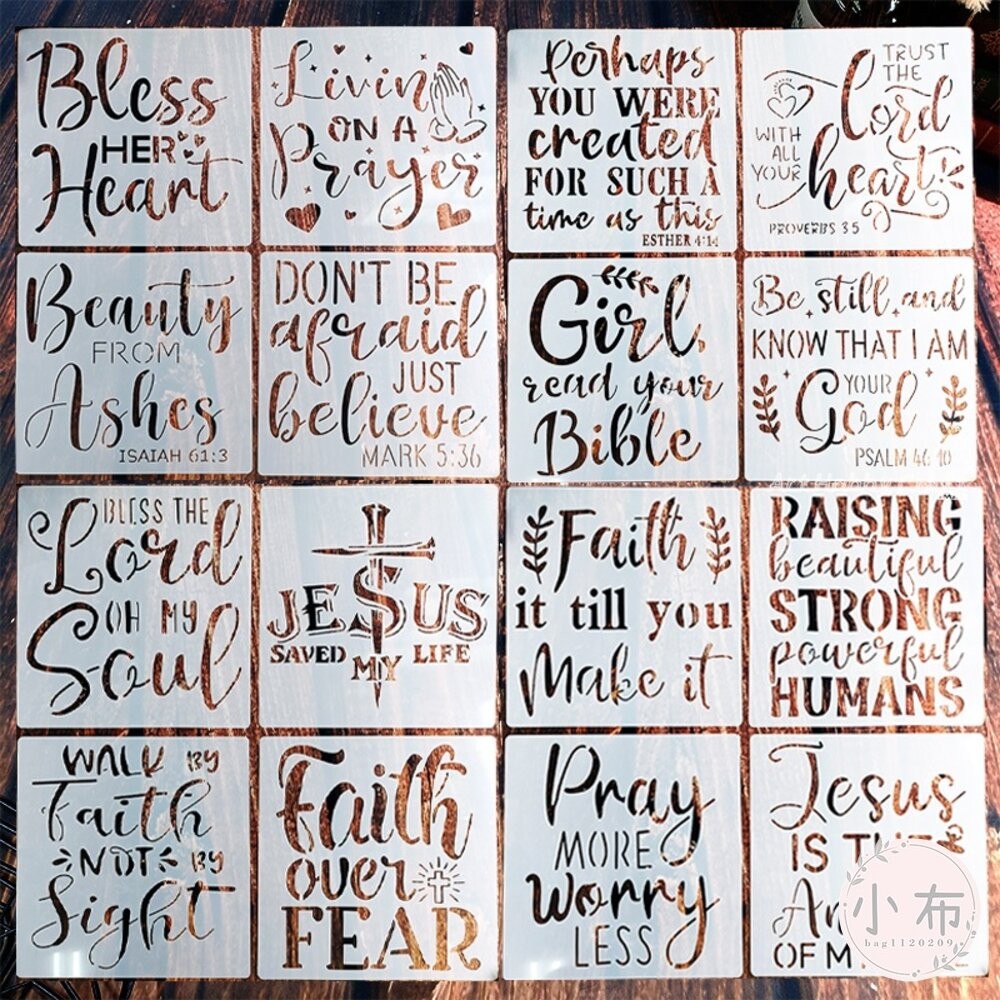 Bless
HER
Heart
Livin
ON A
Prayer
Perhaps
YOU WERE
created
FOR SUCH A
time as this
ESTHER 4:14
TRUST
THE
Lord
WITH
ALL
YOUR
heart
PROVERBS 3 5
Beauty
FROM
Ashes
ISAIAH 61:3
DON'T BE
afraid
JUST
believe
MARK 5:36
Girl,
read your
Bible
Be still and
KNOW THAT I AM
YOUR
God
PSALM 46 10
BLESS THE
Lord
OH MY
Soul
JESUS
SAVED MY LIFE
Faith
it till you
Make it
RAISING
beautiful
STRONG
powerful
HUMANS
WALK BY
Faith
NOT BY
Sight
Faith
over
FEAR
Pray
MORE
Worry
LESS
Jesus
IS
OF
小布
bag1120209